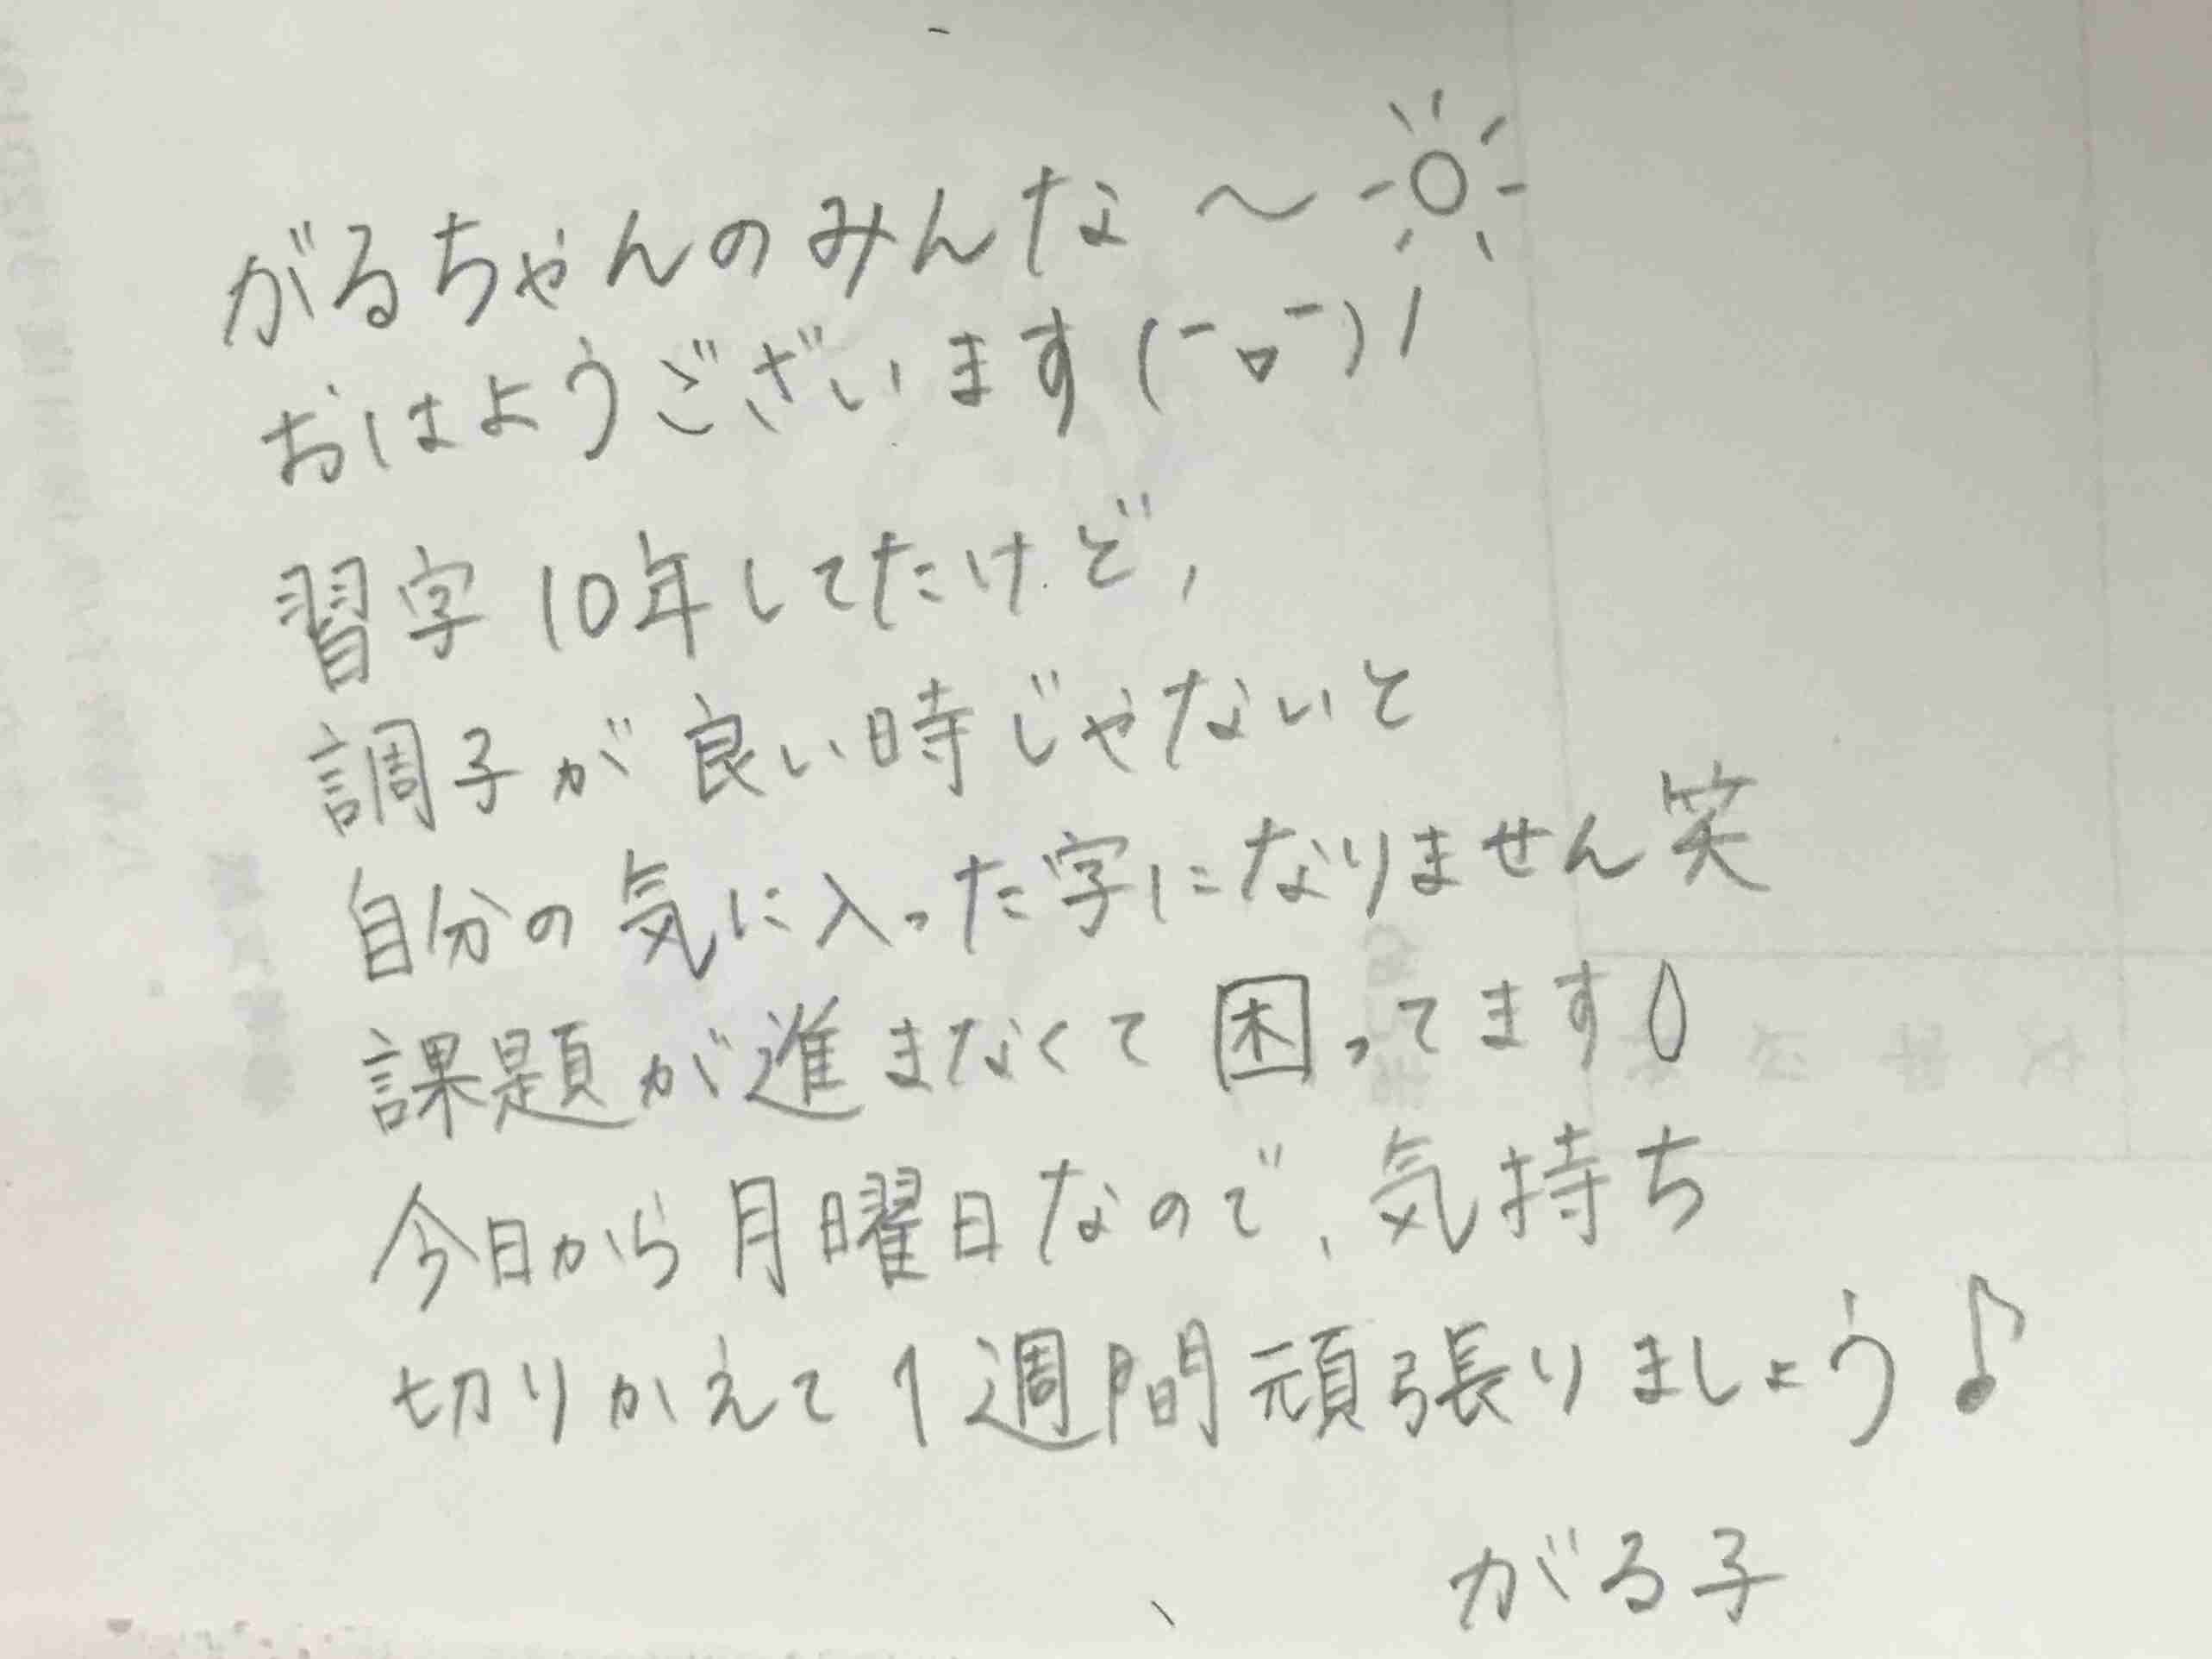 がるちゃんのみんな〜☀
おはようございます(¯▽¯)/
習字10年してたけど,
調子が良い時じゃないと
自分の気に入った字になりません笑
課題が進まなくて困ってます💧
今日から月曜日なので、気持ち
切りかえて1週間頑張りましょう♪
がる子